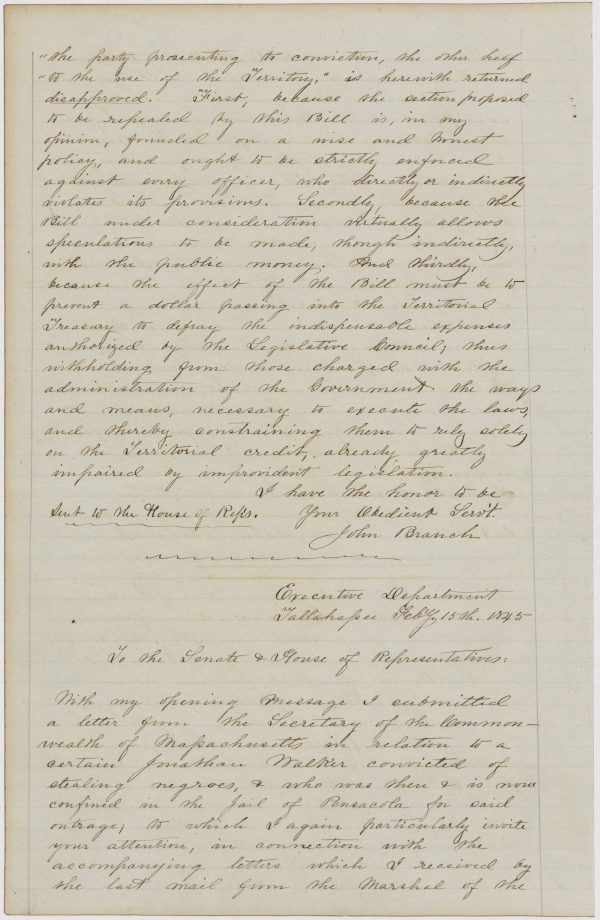 "the party prosecuting to conviction, the other half
"to the use of the Territory," is herewith returned
disapproved. First, because the section proposed
to be repealed by this Bill is, in my
opinion, founded on a wise and honest
policy, and ought to be strictly enforced
against every officer, who directly or indirectly
violates its provisions. Secondly, because the
Bill under consideration virtually allows
speculations to be made, though indirectly,
with the public money. And thirdly,
because the effect of the Bill must be to
prevent a dollar passing into the Territorial
Treasury to defray the indispensable expenses
authorized by the Legislative Council; thus
withholding from those charged with the
administration of the Government the ways
and means, necessary to execute the laws,
and thereby constraining them to rely solely
on the Territorial credit, already greatly
impaired by improvident legislation.
I have the honor to be
Sent to the House of Reps. Your Obedient Servt.
John Branch
Executive Department
Tallahassee Feby 15th. 1845
To the Senate & House of Representatives:
With my opening Message I submitted
a letter from the Secretary of the Common-
wealth of Massachusetts in relation to a
certain Jonathan Walker convicted of
stealing negroes, & who was then & is now
confined in the Jail of Pensacola for said
outrage, to which I again particularly invite
your attention, in connection with the
accompanying letters which I received by
the last mail from the Marshal of the